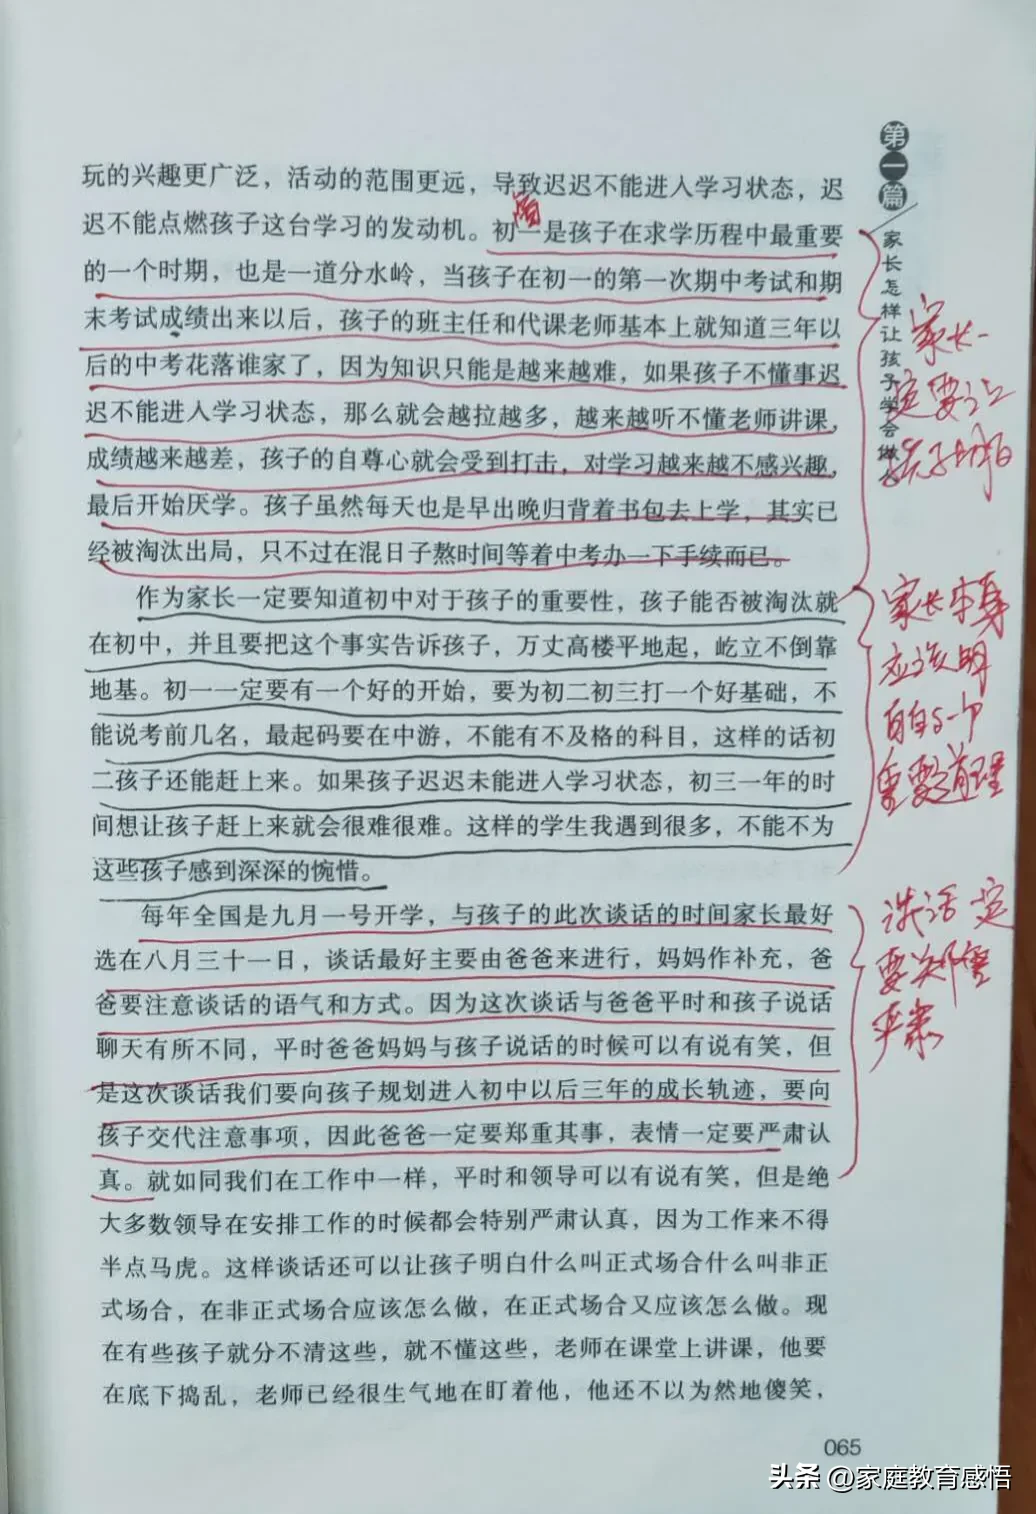 第一篇
家长怎样让孩子学会做
玩的兴趣更广泛，活动的范围更远，导致迟迟不能进入学习状态，迟
迟不能点燃孩子这台学习的发动机。初一是孩子在求学历程中最重要
的一个时期，也是一道分水岭，当孩子在初一的第一次期中考试和期
末考试成绩出来以后，孩子的班主任和代课老师基本上就知道三年以
后的中考花落谁家了，因为知识只能是越来越难，如果孩子不懂事迟
迟不能进入学习状态，那么就会越拉越多，越来越听不懂老师讲课，
成绩越来越差，孩子的自尊心就会受到打击，对学习越来越不感兴趣，
最后开始厌学。孩子虽然每天也是早出晚归背着书包去上学，其实已
经被淘汰出局，只不过在混日子熬时间等着中考办一下手续而已。
作为家长一定要知道初中对于孩子的重要性，孩子能否被淘汰就
在初中，并且要把这个事实告诉孩子，万丈高楼平地起，屹立不倒靠
地基。初一一定要有一个好的开始，要为初二初三打一个好基础，不
能说考前几名，最起码要在中游，不能有不及格的科目，这样的话初
二孩子还能赶上来。如果孩子迟迟未能进入学习状态，初三一年的时
间想让孩子赶上来就会很难很难。这样的学生我遇到很多，不能不为
这些孩子感到深深的惋惜。
每年全国是九月一号开学，与孩子的此次谈话的时间家长最好
选在八月三十一日，谈话最好主要由爸爸来进行，妈妈作补充，爸
爸要注意谈话的语气和方式。因为这次谈话与爸爸平时和孩子说话
聊天有所不同，平时爸爸妈妈与孩子说话的时候可以有说有笑，但
是这次谈话我们要向孩子规划进入初中以后三年的成长轨迹，要向
孩子交代注意事项，因此爸爸一定要郑重其事，表情一定要严肃认
真。就如同我们在工作中一样，平时和领导可以有说有笑，但是绝
大多数领导在安排工作的时候都会特别严肃认真，因为工作来不得
半点马虎。这样谈话还可以让孩子明白什么叫正式场合什么叫非正
式场合，在非正式场合应该怎么做，在正式场合又应该怎么做。现
在有些孩子就分不清这些，就不懂这些，老师在课堂上讲课，他要
在底下捣乱，老师已经很生气地在盯着他，他还不以为然地傻笑，
家长一
定要让
孩子明白
家长本身
应该明
白这个
重要道理
谈话一定
要郑重
严肃
065
头条 @家庭教育感悟